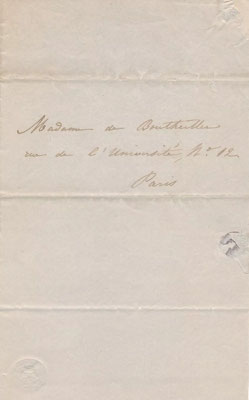 Madame de Bouthillier
rue de l'Université, N.° 12
Paris